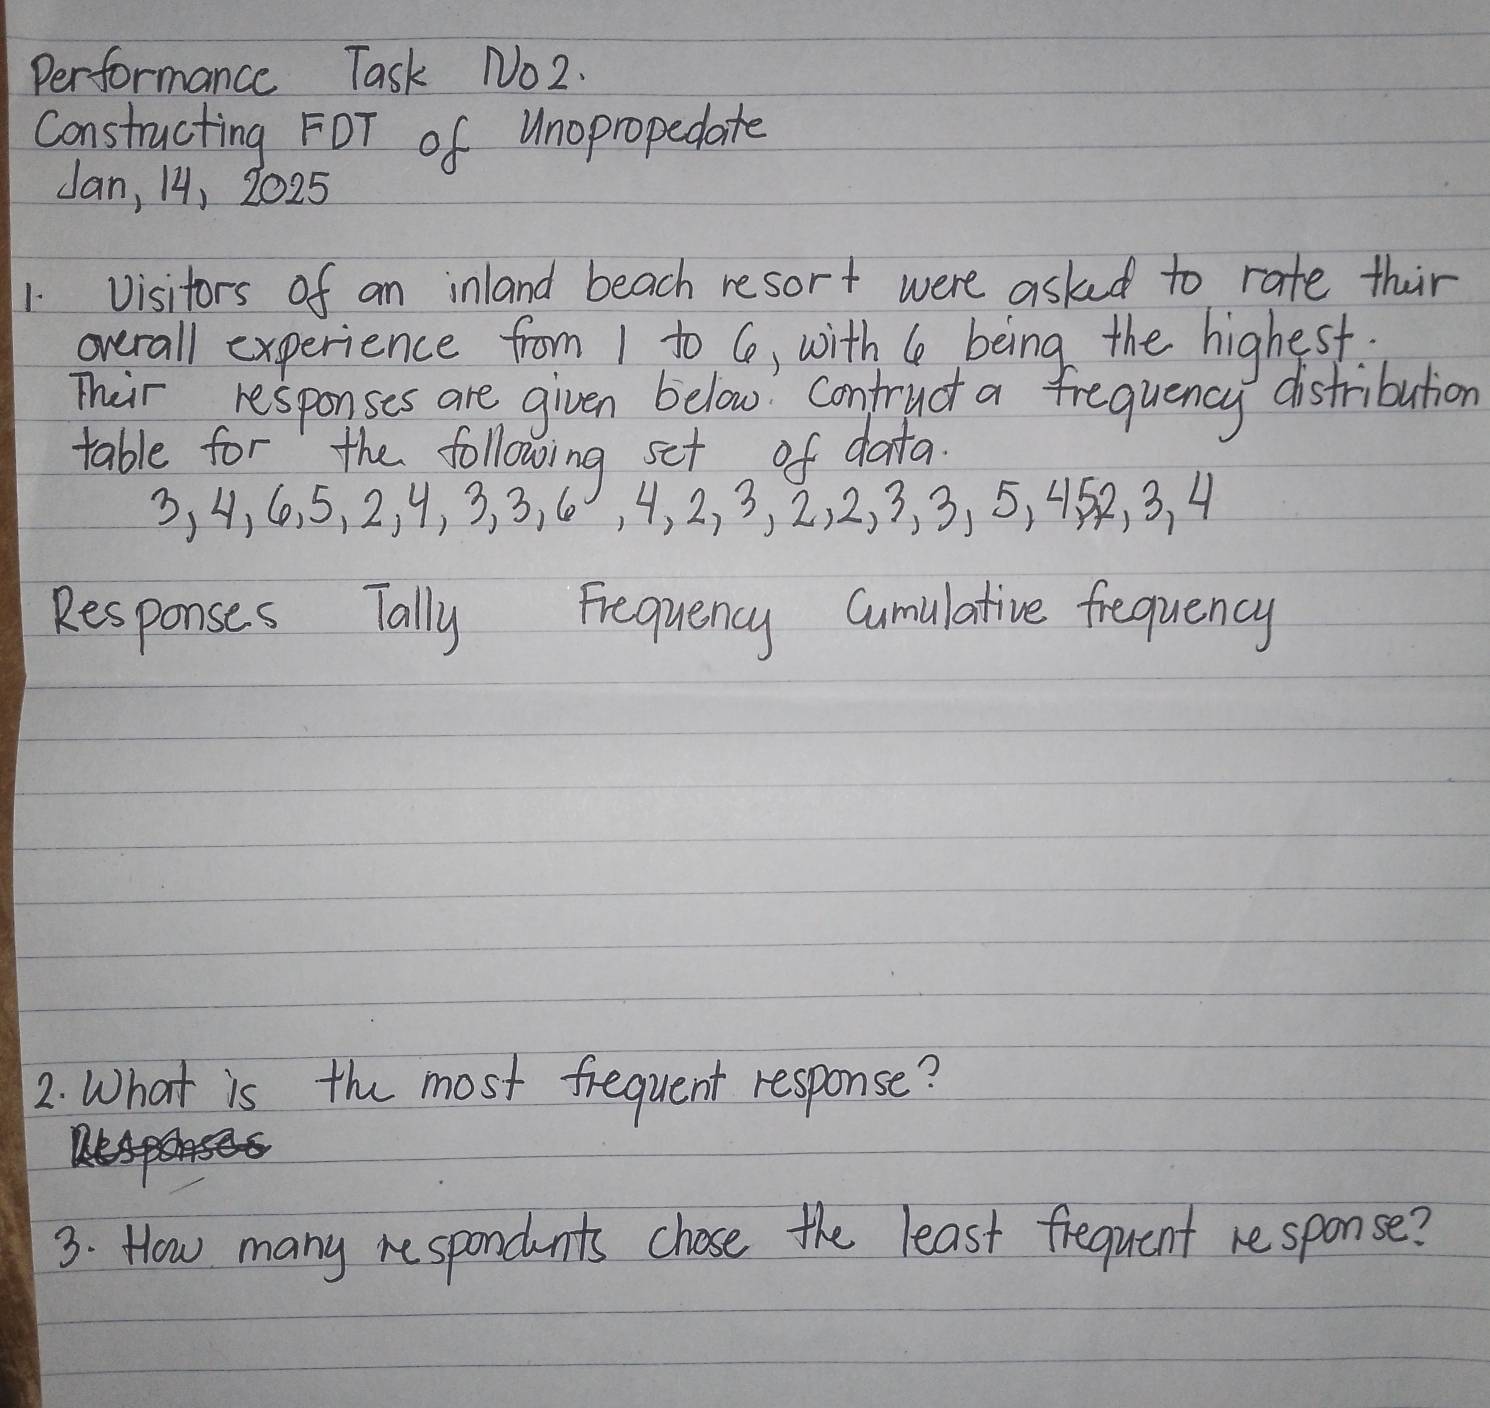 Performance Task No2.
Constructing FDT of Unopropedate
Jan, 14, 2025
1. Visitors of an inland beach resort were asked to rate their
overall experience from 1 to 6, with 6 being the highest.
Their responses are given below. Contruct a frequency distribution
table for the following set of data.
3, 4, 6, 5, 2, 4, 3, 3, 6, 4, 2, 3, 2, 2, 3, 3, 5, 4, 5, 2, 3, 4
Responses Tally Frequency Cumulative frequency
2. What is the most frequent response?
Responses
3. How many respondents chose the least frequent response?